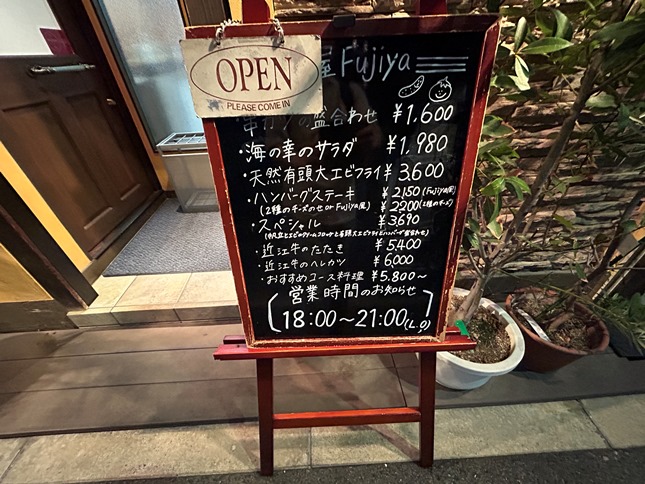 OPEN
PLEASE COME IN
屋 Fujiya
串カツの盛合わせ ¥1,600
・海の幸のサラダ ¥1,980
・天然有頭大エビフライ ¥3,600
・ハンバーグステーキ ¥2,150(Fujiya風)
(2種のチーズのせ or Fujiya風) ¥2,200(2種のチーズ)
・スペシャル ¥3,690
・近江牛のたたき ¥5,400
・近江牛のヘレカツ ¥6,000
・おすすめコース料理 ¥5,800〜
営業時間のお知らせ
18:00〜21:00(L.O)